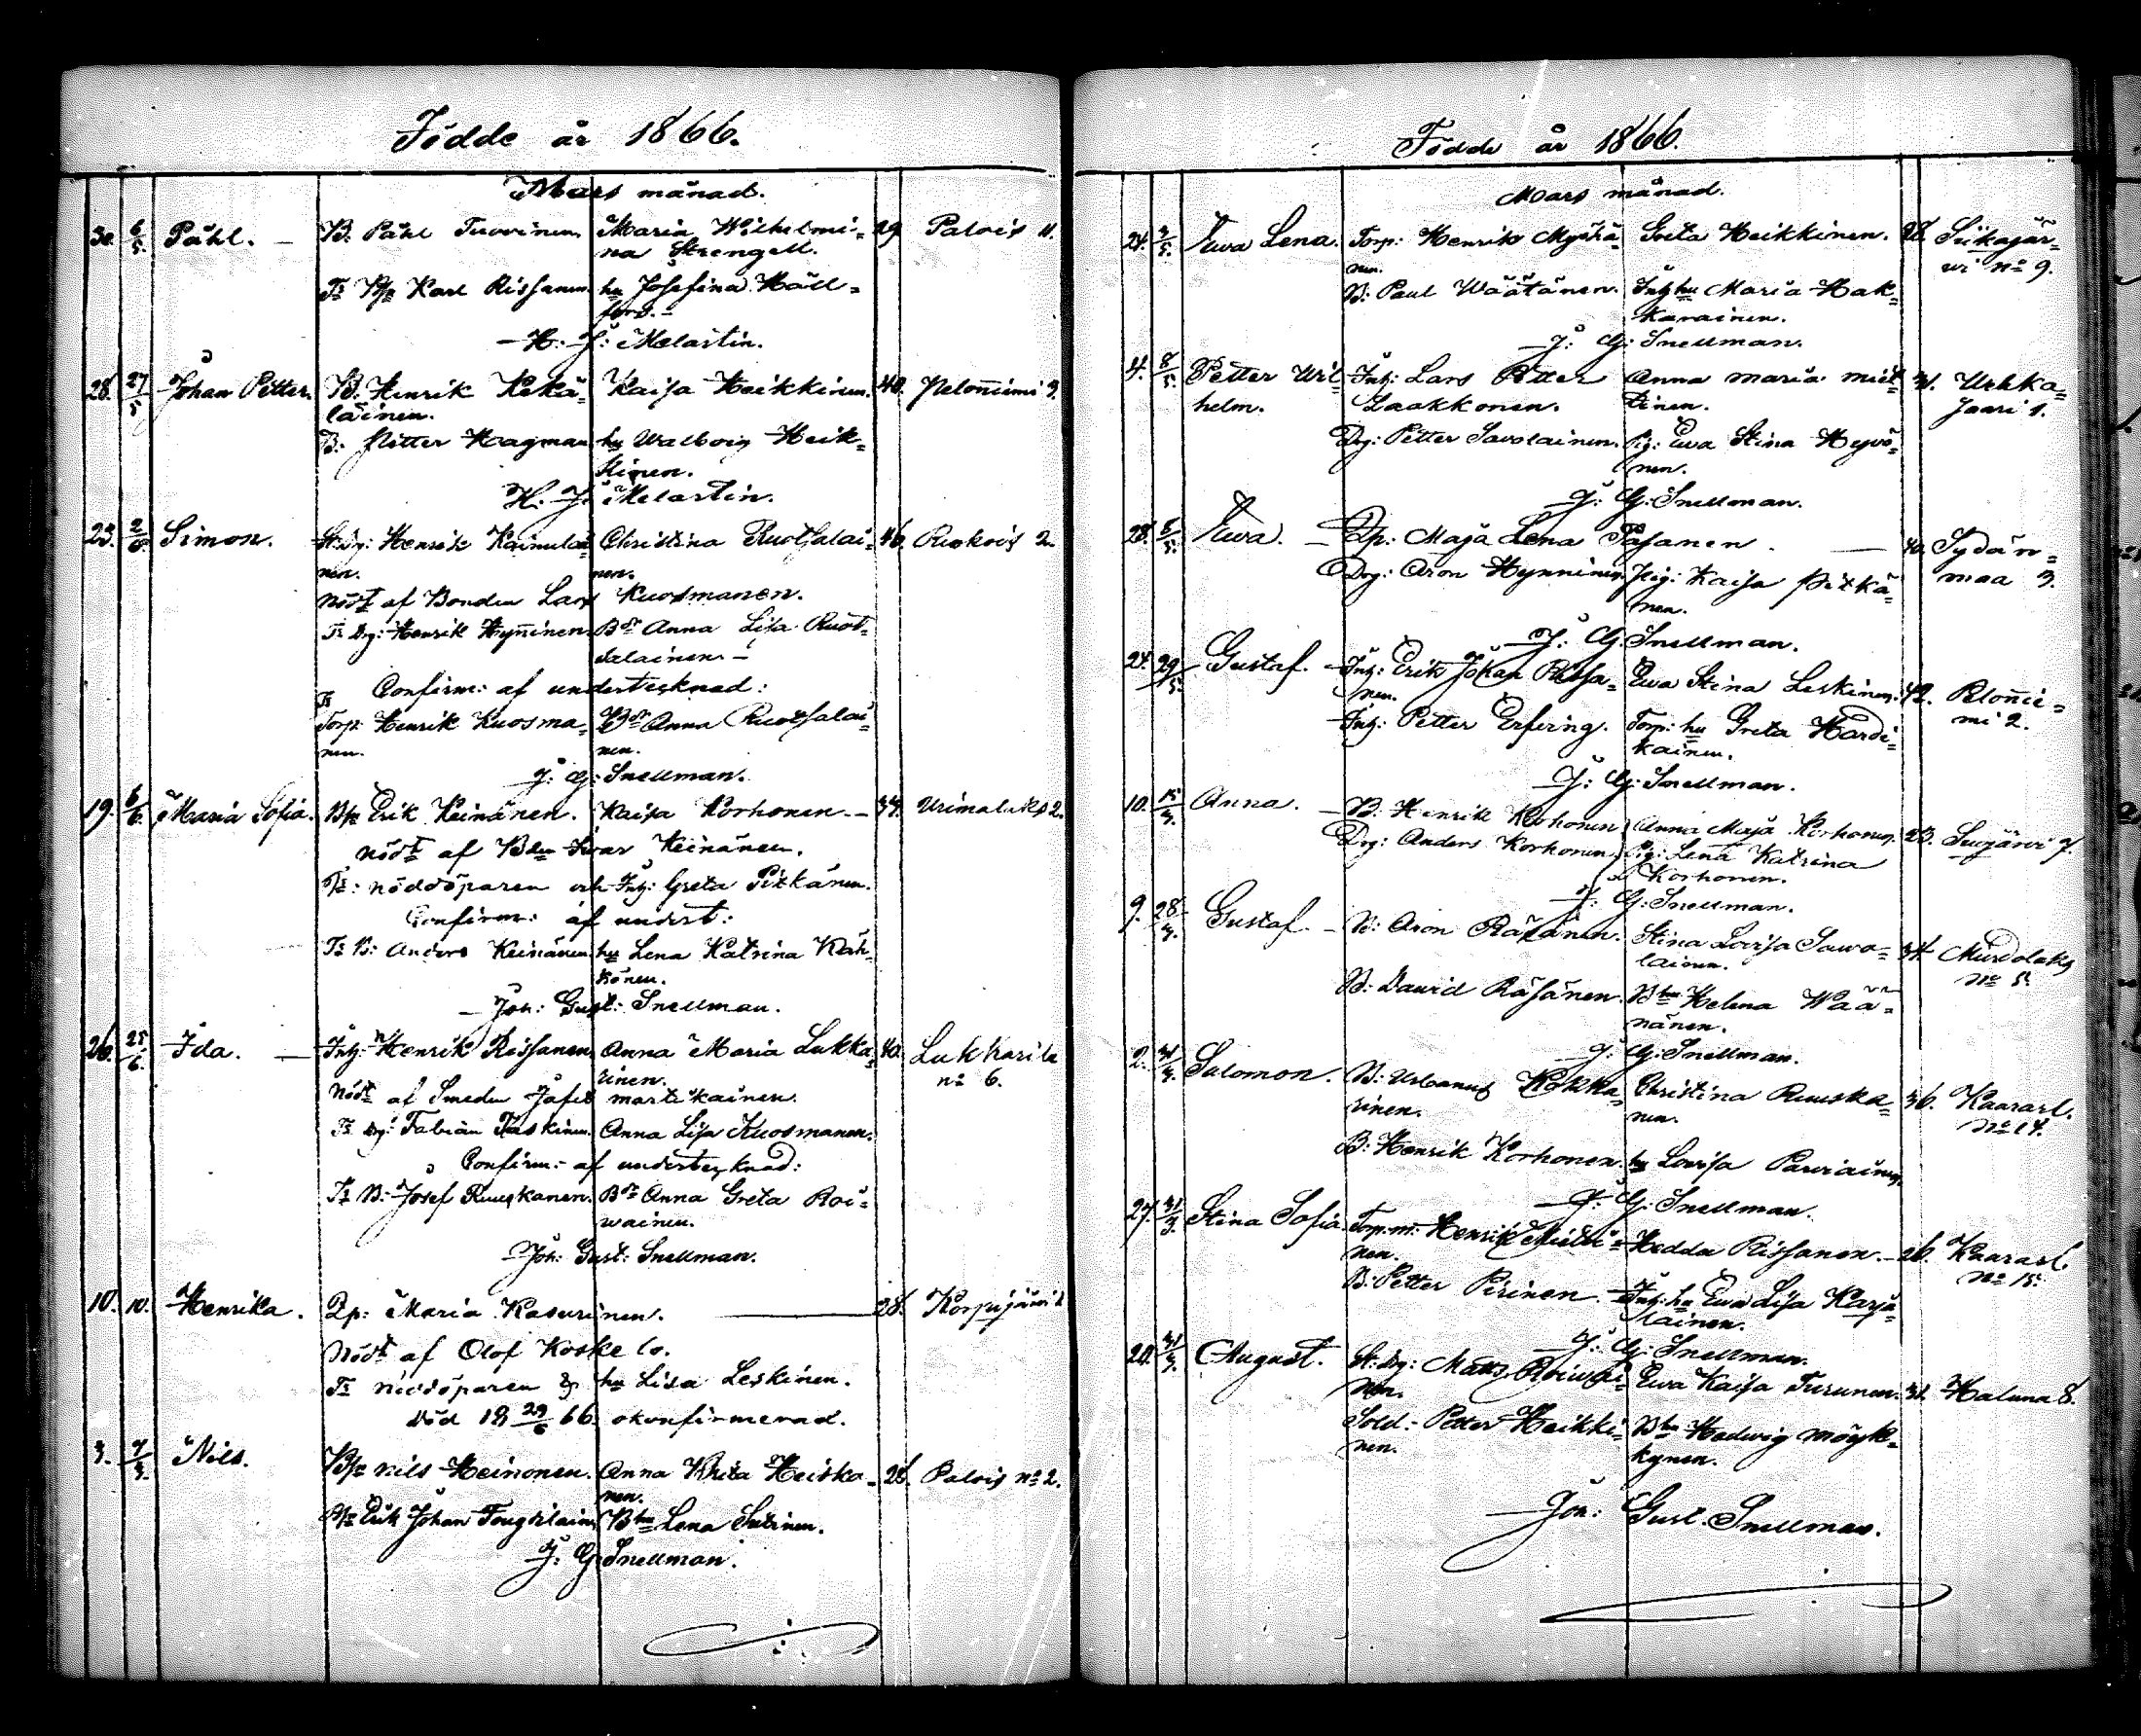 Födde år 1866.
Mars månad.
30. 6/5. Påhl. — B. Påhl Tuovinen Maria Wilhelmi= 29 Palois 11.
na Strengell.
Ts Bp Karl Rissanen hu Josefina Häll=
fors. —
H. J. Melartin.
28. 27/5 Johan Petter. B. Henrik Kekä= Kaisa Heikkinen. 40. Pelonniemi 3.
läinen.
B. Petter Hagman hu Walborg Heik=
kinen.
H. J. Melartin.
23. 2/6. Simon. St.dr: Henrik Kainulai Christina Ruotsalai= 46. Ruokois 2.
nen. nen.
Nödt af Bonden Lars Kuosmanen.
Ts Drg: Henrik Hynninen Bdr Anna Lisa Ruot=
salainen. —
Confirm: af undertecknad:
Ts
Torp: Henrik Kuosma= Bdr Anna Ruotsalai=
nen. nen.
J. G. Snellman.
19. 6/6. Maria Sofia. Bp Erik Keinänen. Kaisa Korhonen. — 34. Urimolaks 2.
nödt af Bdn Ivar Keinänen.
Ts: nöddöparen och Inh: Greta Pitkänen.
Confirm: af undert:
Ts B: Anders Keinänen hu Lena Katrina Käh=
könen.
Joh: Gust: Snellman.
26. 25/6. Ida. — Inh: Henrik Rissanen Anna Maria Lukka= 40. Lukkarila
rinen. no 6.
Nödt af Smeden Jafet Martikainen.
Ts drg: Fabian Taskinen. Anna Lisa Kuosmanen.
Confirm: af undertecknad:
Ts B: Josef Ruuskanen. Bdr Anna Greta Roi=
wainen.
Joh: Gust: Snellman.
10. 10. Henrika. Qp: Maria Kasurinen. — 28. Korpijärvi
Nödt af Olof Koskelo.
Ts nöddöparen & hu Lisa Leskinen.
död 18 29/6 66. okonfirmerad.
3. 7/3. Nils. Bp Nils Heinonen. Anna Brita Heiska= 26. Palois no 2.
nen.
Bp Erik Johan Tougilainen Bhu Lena Sutinen.
J. G. Snellman.
Födde år 1866.
Mars månad.
24. 3/5. Ewa Lena. Torp: Henrik Mykkä= Greta Heikkinen. 28. Siikajär=
nen. wi no 9.
B: Paul Wäätänen. Inh hu Maria Hak=
karainen.
J: G: Snellman.
4. 8/5. Petter Wil= Inh: Lars Petter Anna Maria Miet= 31. Wehka=
helm. Laakkonen. tinen. saari 1.
Drg: Petter Savolainen. Pig: Ewa Stina Hyvö=
nen.
J: G: Snellman.
28. 8/5. Ewa. — Qp: Maja Lena Pasanen. — 40. Sydän=
Drg: Aron Hynninen Pig: Kaisa Pitkä= maa 3.
nen.
J: G: Snellman.
24. 29/5. Gustaf. — Inh: Erik Johan Rissa= Ewa Stina Leskinen. 42. Pelonnie=
nen. mi 2.
Inh: Petter Erfving. Torp: hu Greta Hardi=
kainen.
J: G: Snellman.
10. 15/3. Anna. — B: Henrik Korhonen Anna Maja Korhonen. 23. Suojärvi 7.
Drg: Anders Korhonen. Pig: Lena Katrina
Korhonen.
J: G: Snellman.
9. 28/3. Gustaf. — B: Aron Räsänen. Stina Lovisa Sawo= 34. Murdolaks
lainen. no 5.
B: David Räsänen. Bhu Helena Wää=
nänen.
J: G: Snellman.
2. 31/3. Salomon. B: Urbanus Kokka= Christina Ruuska= 36. Kaarasl.
rinen. nen. no 14.
B: Henrik Korhonen. hu Lovisa Parviainen.
J: G: Snellman.
27. 31/3. Stina Sofia. Torp.m: Henrik Mieti= Hedda Rissanen. — 26. Kaarasl.
nen. no 15.
B: Petter Pirinen. — Inh: hu Ewa Lisa Karja=
lainen.
J: G: Snellman.
20. 31/3. August. St. drg: Matts Roivai= Ewa Kaisa Turunen. 31. Haluna 8.
nen.
Sold: Petter Heikki= Bhu Hedwig Möyk=
nen. kynen.
Joh: Gust. Snellman.